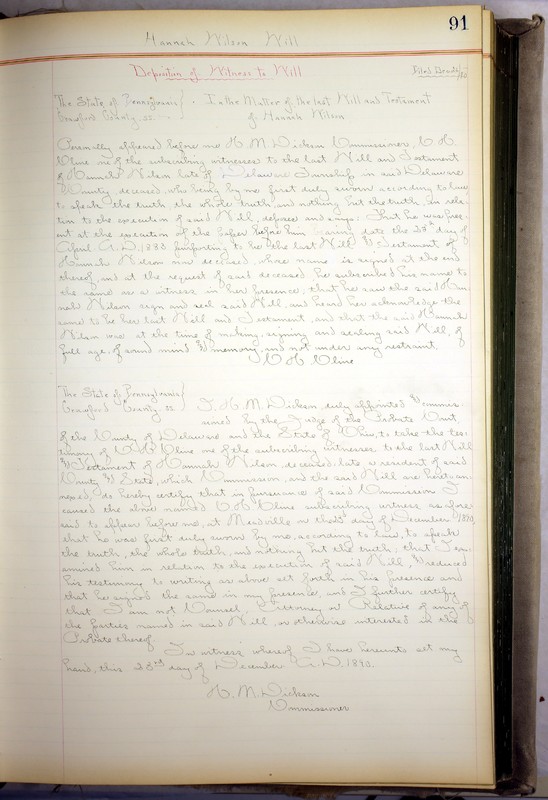 91
Hannah Wilson Will
Deposition of Witness to Will
The State of Pennsylvania } In the Matter of the last Will and Testament
Crawford County, ss. of Hannah Wilson
Personally appeared before me H. M. Dickson Commissioner, C. H.
Cline one of the subscribing witnesses to the last Will and Testament
of Hannah Wilson late of Delaware Township in said Delaware
County, deceased, who being by me first duly sworn according to law
to speak the truth, the whole truth, and nothing but the truth, in rela-
tion to the execution of said Will, deposes and says: That he was pres-
ent at the execution of the paper before him bearing date the 23d day of
April A.D. 1883 purporting to be the last Will & Testament of
Hannah Wilson now deceased, whose name is signed at the end
thereof, and at the request of said deceased he subscribed his name to
the same as a witness in her presence, that he saw the said Han-
nah Wilson sign and seal said Will, and heard her acknowledge the
same to be her last Will and Testament, and that the said Hannah
Wilson was at the time of making, signing and sealing said Will, of
full age, of sound mind & memory, and not under any restraint.
C H Cline
The State of Pennsylvania }
Crawford County ss } I, H. M. Dickson, duly appointed & commis-
sioned by the Judge of the Probate Court
of the County of Delaware and the State of Ohio, to take the tes-
timony of C. H. Cline one of the subscribing witnesses to the last Will
& Testament of Hannah Wilson, deceased, late a resident of said
County & State, which Commission, and the said Will are hereto an-
nexed, do hereby certify that in pursuance of said Commission I
caused the above named C H Cline subscribing witness as afore-
said to appear before me, at Meadville on the day of December 1890,
that he was first duly sworn by me, according to law, to speak
the truth, the whole truth, and nothing but the truth; that I ex-
amined him in relation to the execution of said Will, & reduced
his testimony to writing as above set forth in his presence and
that he signed the same in my presence, and I further certify
that I am not Counsel, Attorney or Relative of any of
the parties named in said Will, or otherwise interested in the
Probate thereof.
In witness whereof I have hereunto set my
hand, this 23rd day of December A.D. 1890.
H. M. Dickson
Commissioner